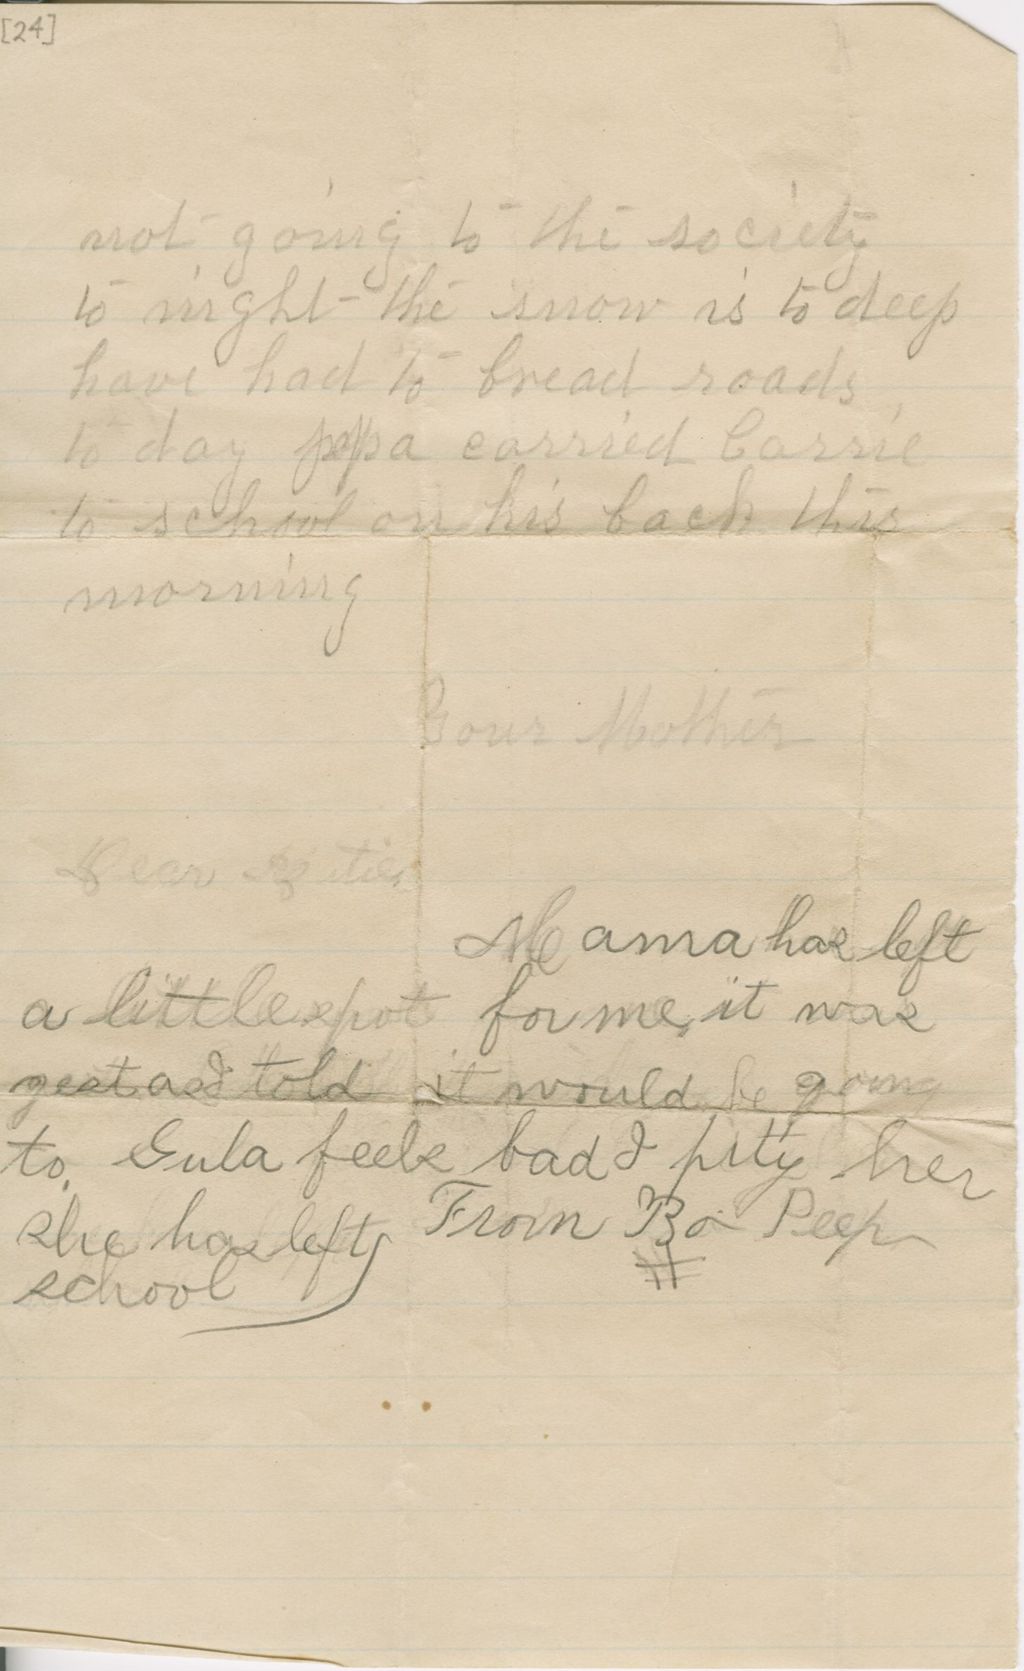 [24]
not going to the society
to night the snow is to deep
have had to bread roads
to day papa carried Carrie
to school on his back this
morning
Your Mother
Dear
Mama has left
a little spot for me, it was
gest as I told it would be going
to. Eula feels bad I pity her
she has left From Bo Peep
school